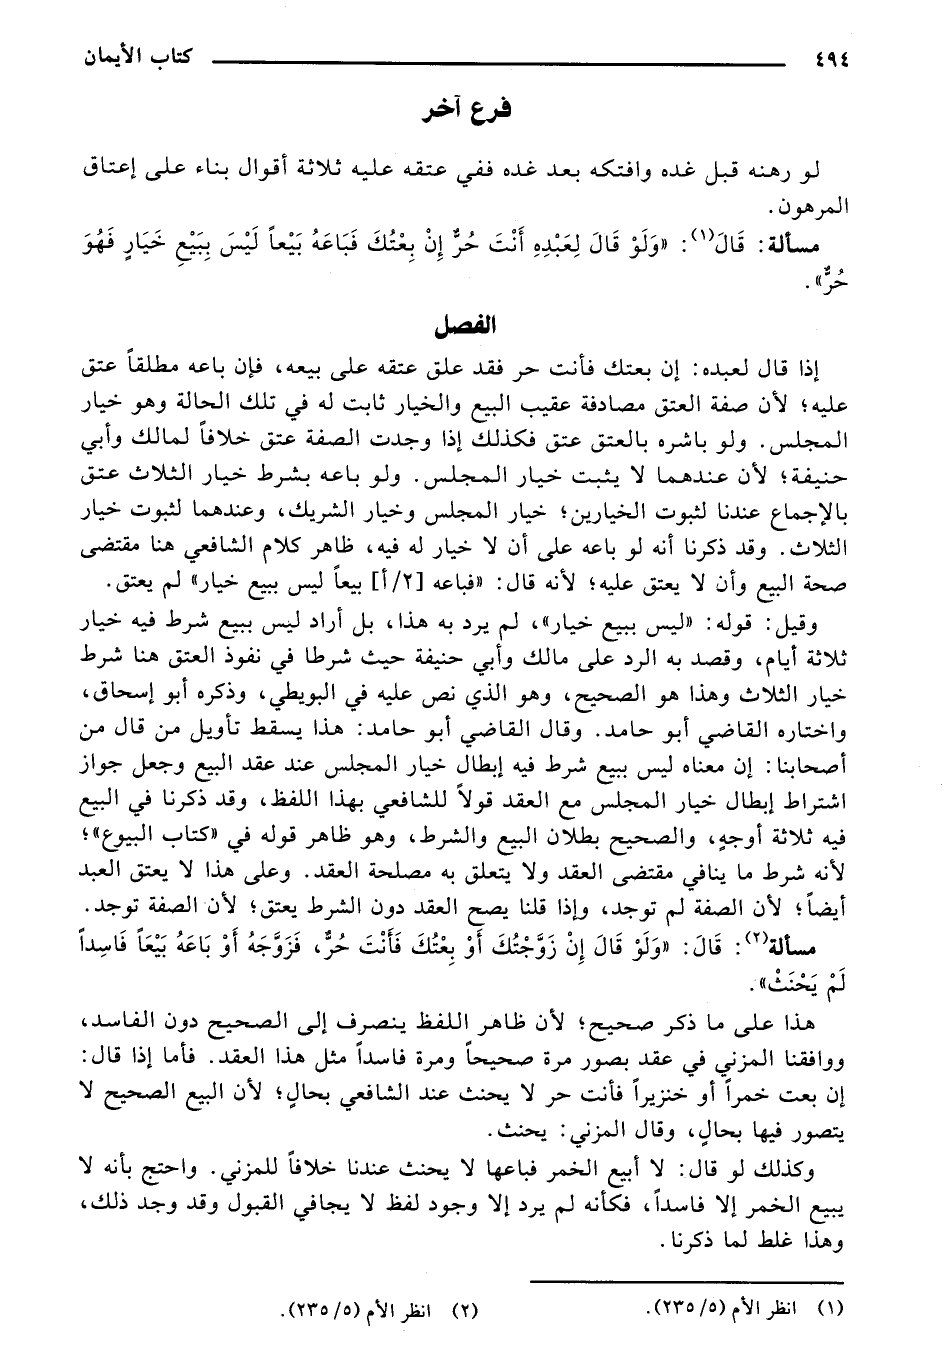 ٤٩٤ كتاب الأيمان
فرع آخر
لو رهنه قبل غده وافتكه بعد غده ففي عتقه عليه ثلاثة أقوال بناء على إعتاق
المرهون.
مسألة: قَالَ(١): «وَلَوْ قَالَ لِعَبْدِهِ أَنْتَ حُرٌّ إِنْ بِعْتُكَ فَبَاعَهُ بَيْعاً لَيْسَ بِبَيْعِ خَيَارٍ فَهُوَ
حُرٌّ».
الفصل
إذا قال لعبده: إن بعتك فأنت حر فقد علق عتقه على بيعه، فإن باعه مطلقاً عتق
عليه؛ لأن صفة العتق مصادفة عقيب البيع والخيار ثابت له في تلك الحالة وهو خيار
المجلس. ولو باشره بالعتق عتق فكذلك إذا وجدت الصفة عتق خلافاً لمالك وأبي
حنيفة؛ لأن عندهما لا يثبت خيار المجلس. ولو باعه بشرط خيار الثلاث عتق
بالإجماع عندنا لثبوت الخيارين؛ خيار المجلس وخيار الشريك، وعندهما لثبوت خيار
الثلاث. وقد ذكرنا أنه لو باعه على أن لا خيار له فيه، ظاهر كلام الشافعي هنا مقتضى
صحة البيع وأن لا يعتق عليه؛ لأنه قال: «فباعه [٢/أ] بيعاً ليس ببيع خيار» لم يعتق.
وقيل: قوله: «ليس ببيع خيار»، لم يرد به هذا، بل أراد ليس ببيع شرط فيه خيار
ثلاثة أيام، وقصد به الرد على مالك وأبي حنيفة حيث شرطا في نفوذ العتق هنا شرط
خيار الثلاث وهذا هو الصحيح، وهو الذي نص عليه في البويطي، وذكره أبو إسحاق،
واختاره القاضي أبو حامد. وقال القاضي أبو حامد: هذا يسقط تأويل من قال من
أصحابنا: إن معناه ليس ببيع شرط فيه إبطال خيار المجلس عند عقد البيع وجعل جواز
اشتراط إبطال خيار المجلس مع العقد قولاً للشافعي بهذا اللفظ، وقد ذكرنا في البيع
فيه ثلاثة أوجهٍ، والصحيح بطلان البيع والشرط، وهو ظاهر قوله في «كتاب البيوع»؛
لأنه شرط ما ينافي مقتضى العقد ولا يتعلق به مصلحة العقد. وعلى هذا لا يعتق العبد
أيضاً؛ لأن الصفة لم توجد، وإذا قلنا يصح العقد دون الشرط يعتق؛ لأن الصفة توجد.
مسألة(٢): قَالَ: «وَلَوْ قَالَ إِنْ زَوَّجْتُكَ أَوْ بِعْتُكَ فَأَنْتَ حُرٌّ، فَزَوَّجَهُ أَوْ بَاعَهُ بَيْعَاً فَاسِداً
لَمْ يَحْنَثْ».
هذا على ما ذكر صحيح؛ لأن ظاهر اللفظ ينصرف إلى الصحيح دون الفاسد،
ووافقنا المزني في عقد بصور مرة صحيحاً ومرة فاسداً مثل هذا العقد. فأما إذا قال:
إن بعت خمراً أو خنزيراً فأنت حر لا يحنث عند الشافعي بحالٍ؛ لأن البيع الصحيح لا
يتصور فيها بحالٍ، وقال المزني: يحنث.
وكذلك لو قال: لا أبيع الخمر فباعها لا يحنث عندنا خلافاً للمزني. واحتج بأنه لا
يبيع الخمر إلا فاسداً، فكأنه لم يرد إلا وجود لفظ لا يجافي القبول وقد وجد ذلك،
وهذا غلط لما ذكرنا.
(١) انظر الأم (٥/ ٢٣٥). (٢) انظر الأم (٥/ ٢٣٥).